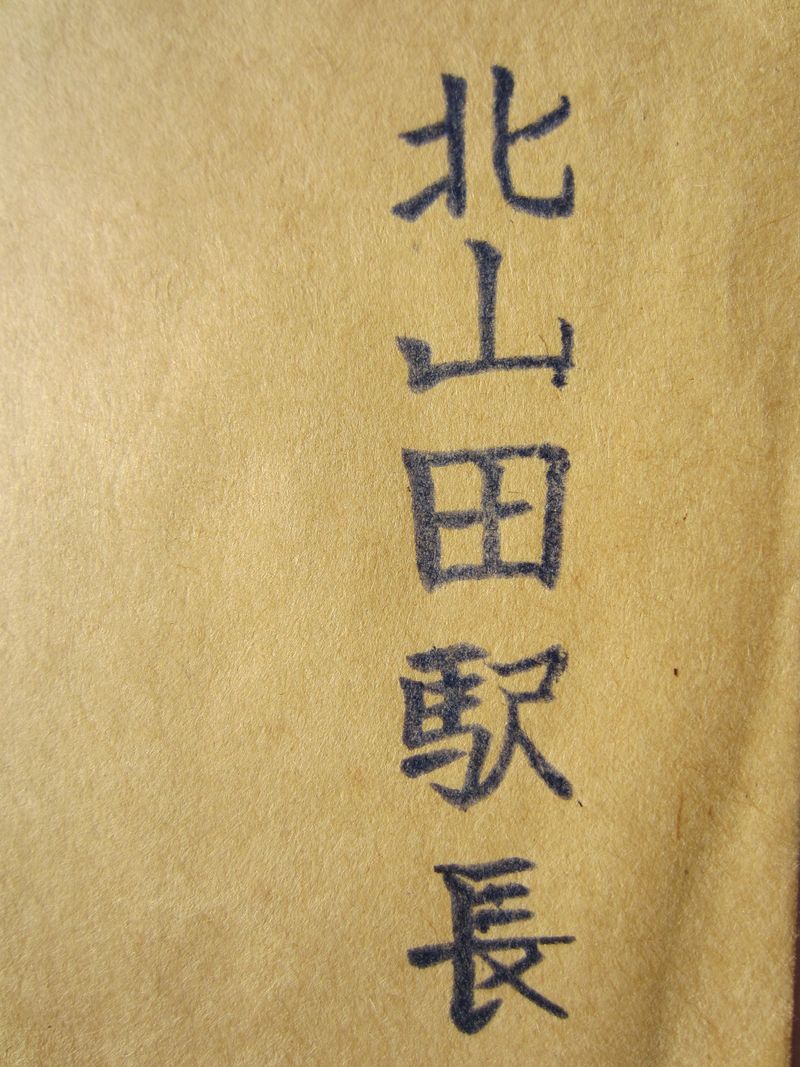 北山田駅長